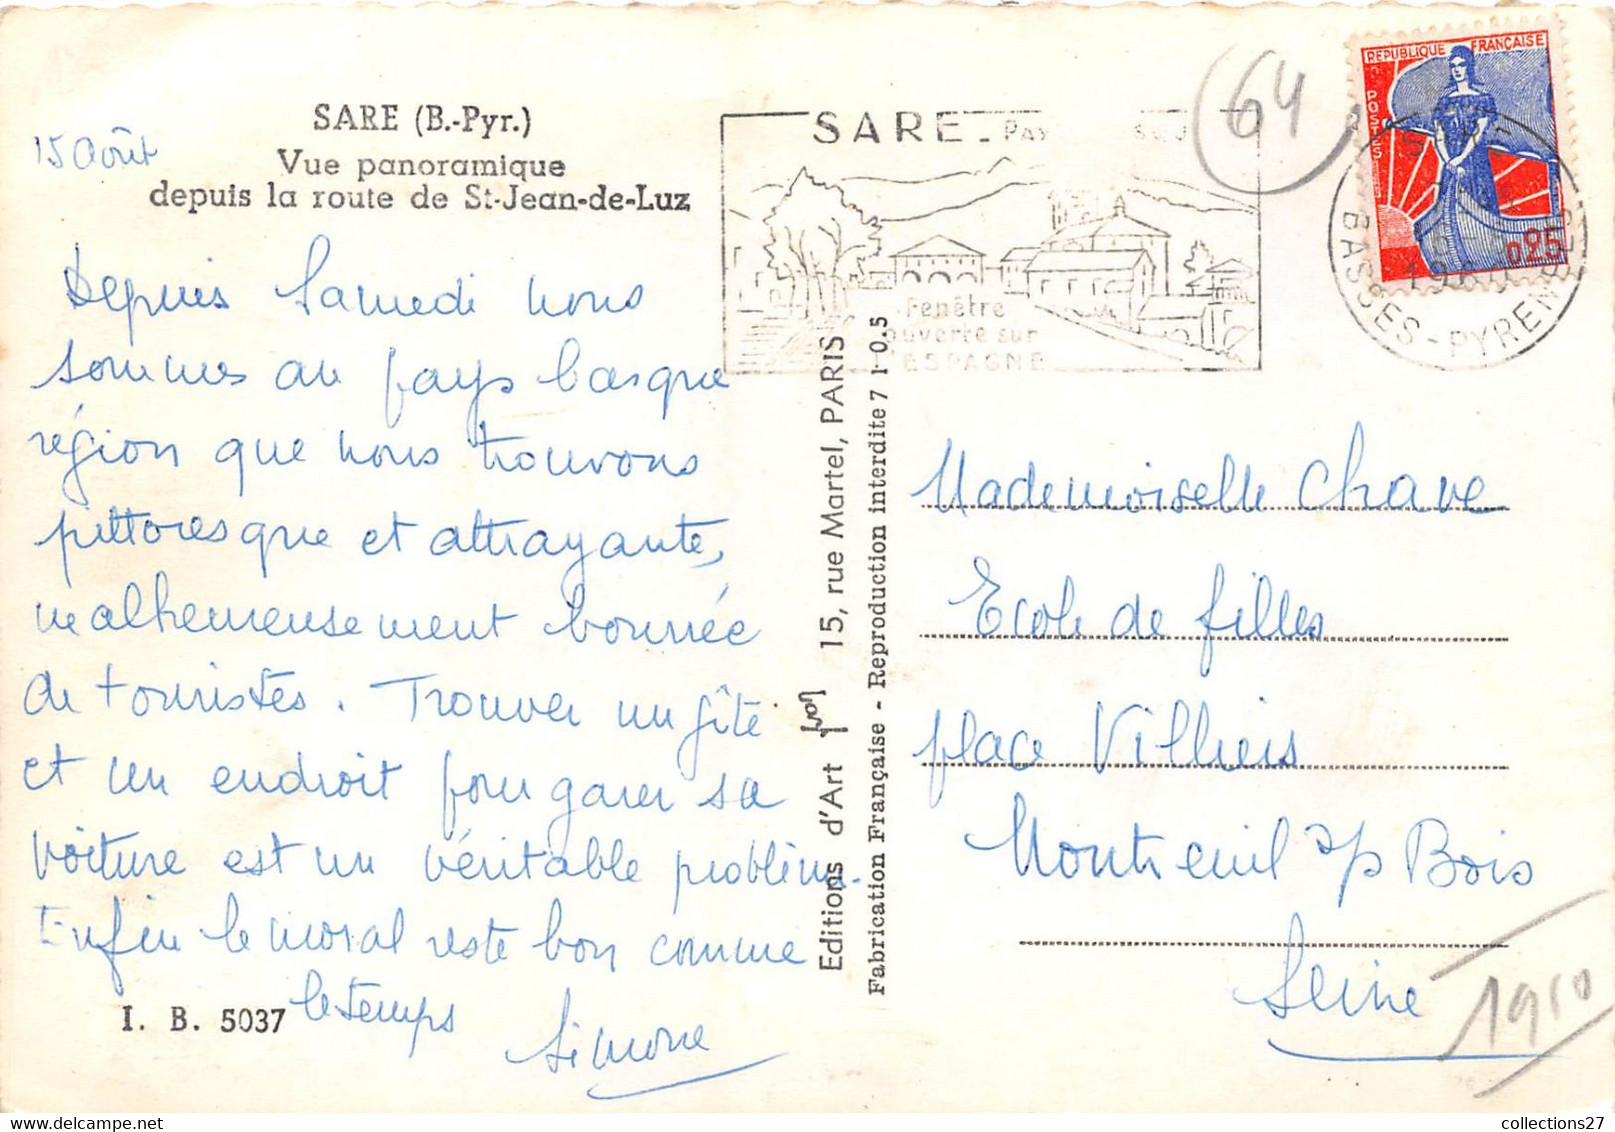 15 Août
SARE (B.-Pyr.)
Vue panoramique
depuis la route de St-Jean-de-Luz
Depuis Samedi nous
sommes au pays basque
région que nous trouvons
pittoresque et attrayante,
malheureusement bourrée
de touristes. Trouver un gîte
et un endroit pour garer sa
voiture est un véritable problème.
Enfin le moral reste bon comme
le temps
Simone
I. B. 5037
Editions d'Art Yvon 15, rue Martel, PARIS
Fabrication Française - Reproduction interdite 7 1 0.5
SARE -
Fenêtre
ouverte sur
l'ESPAGNE
64
REPUBLIQUE FRANÇAISE
POSTES
0,25
SARE
BASSES-PYRENEES
Mademoiselle Chave
Ecole de filles
place Villiers
Montreuil s/s Bois
Seine
1960
collections27